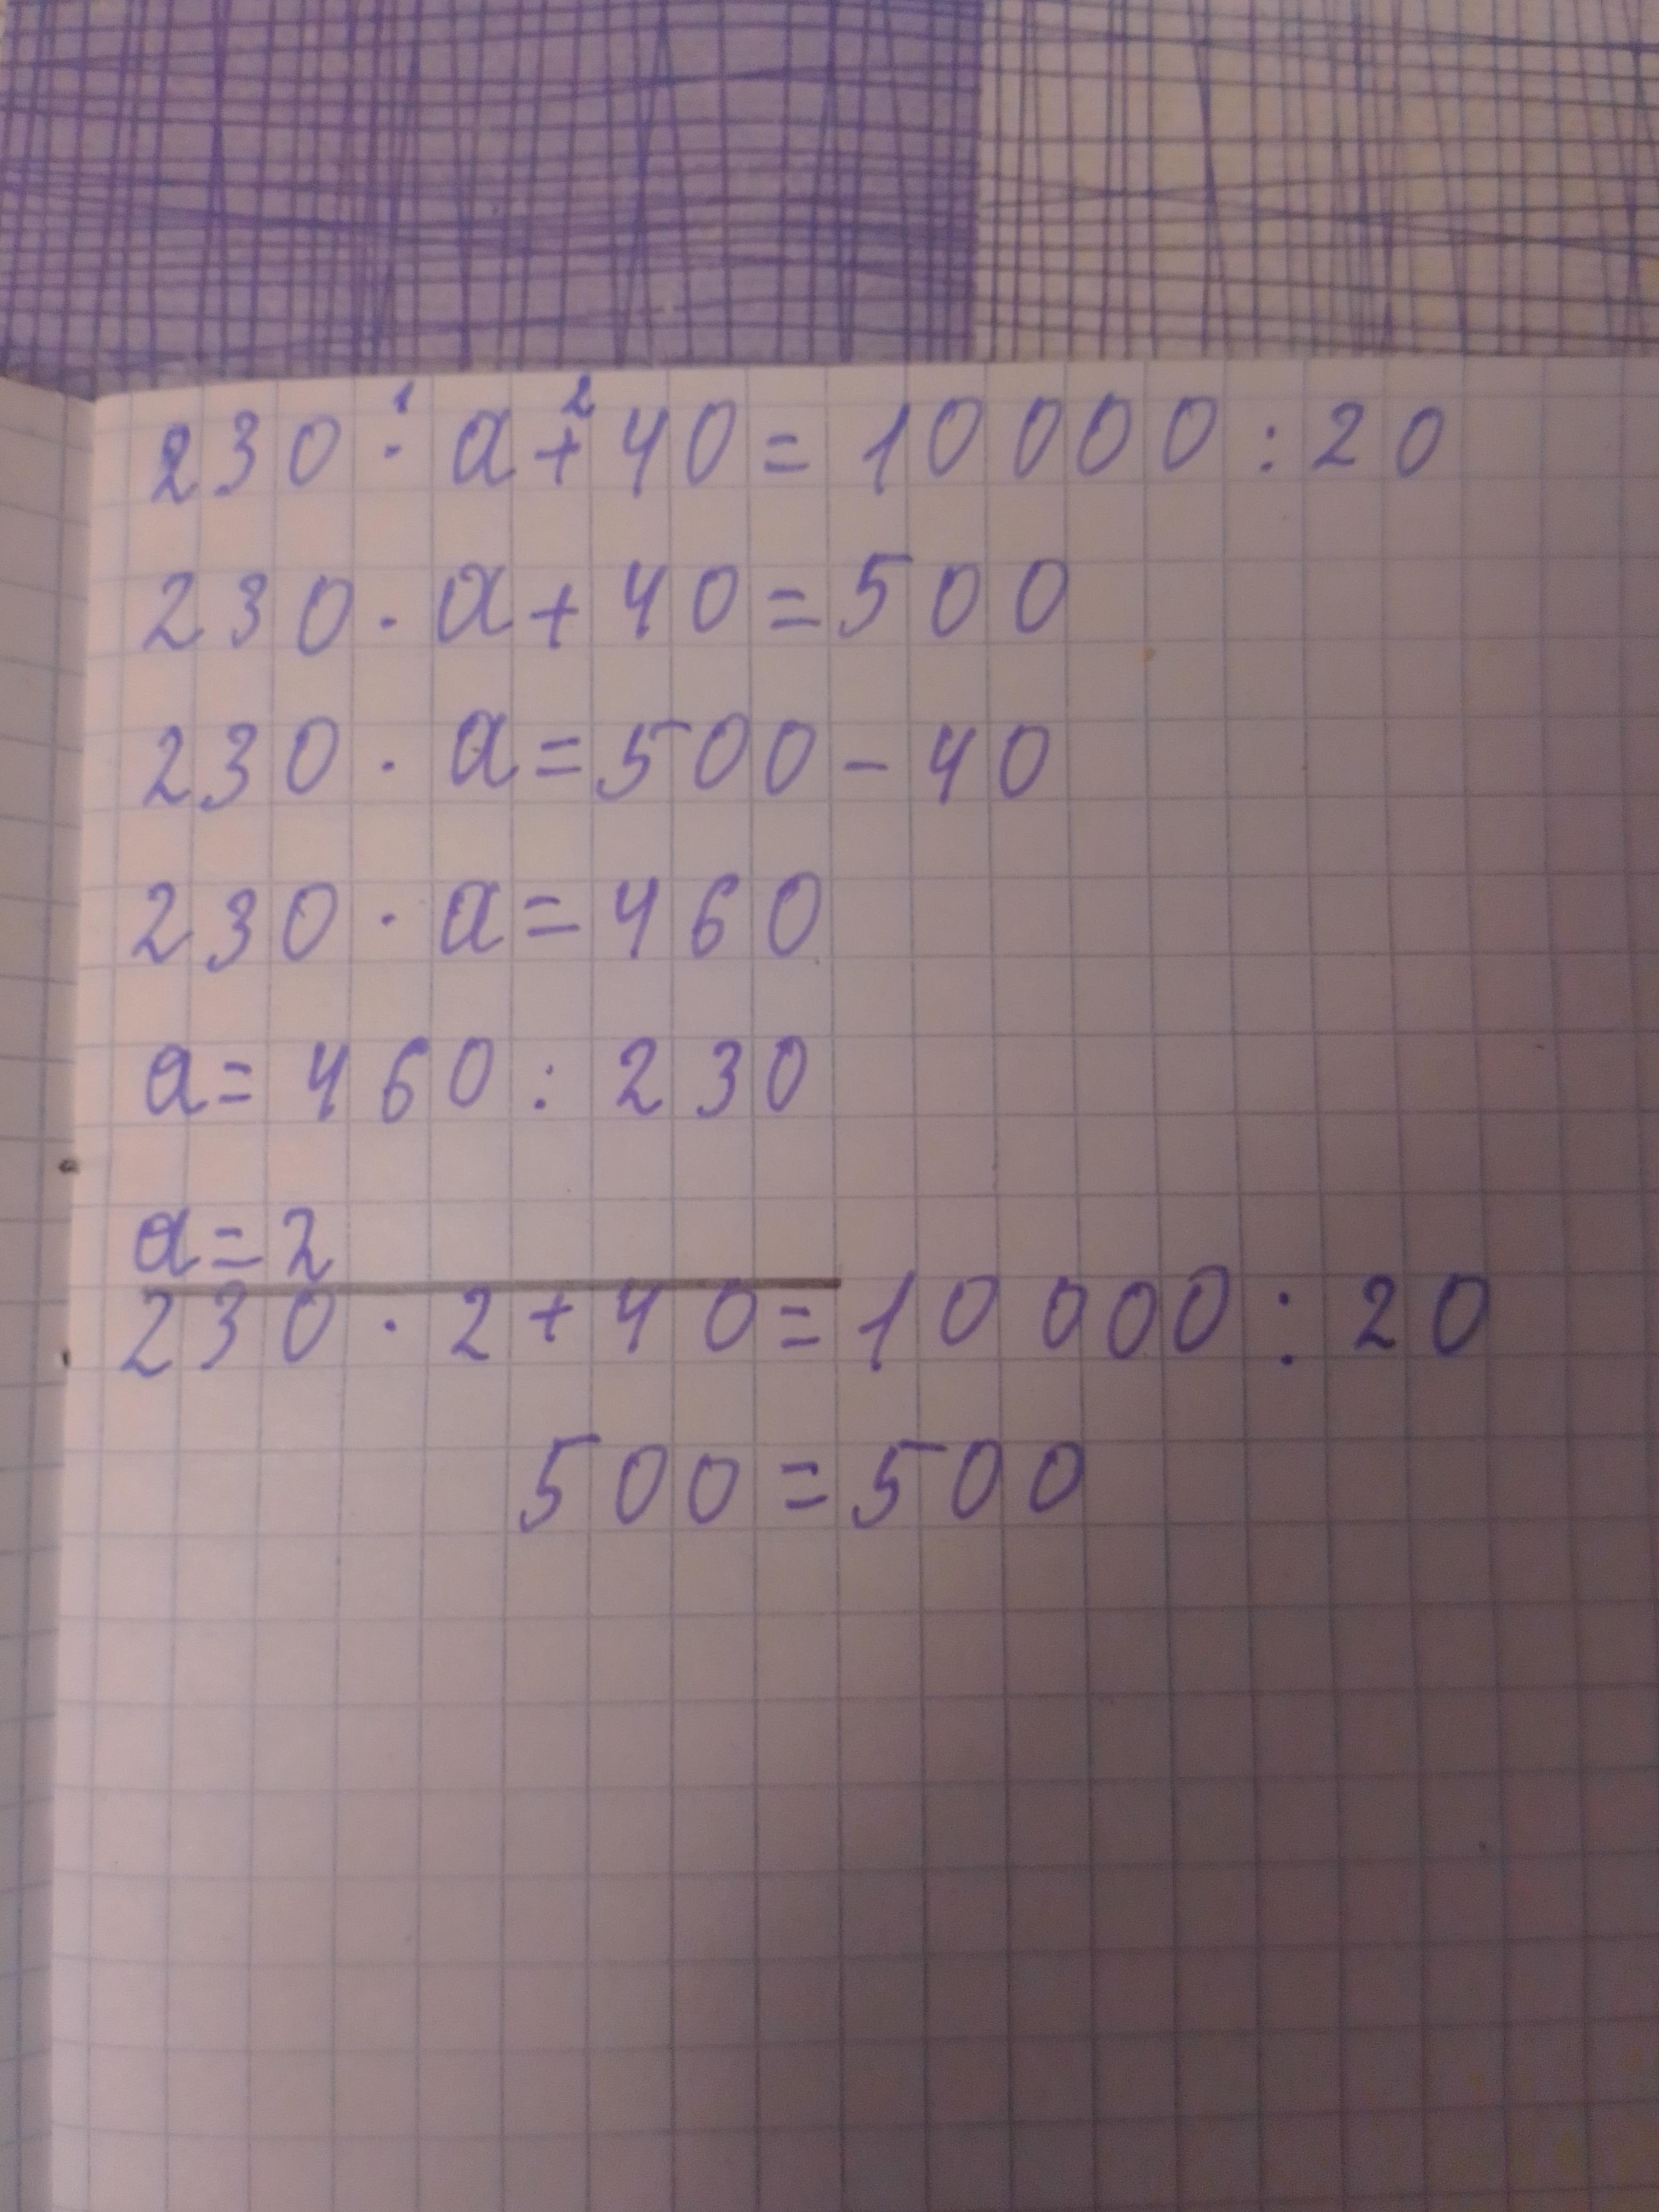 230 · a + 40 = 10 000 : 20
230 · a + 40 = 500
230 · a = 500 - 40
230 · a = 460
a = 460 : 230
a = 2
230 · 2 + 40 = 10 000 : 20
500 = 500